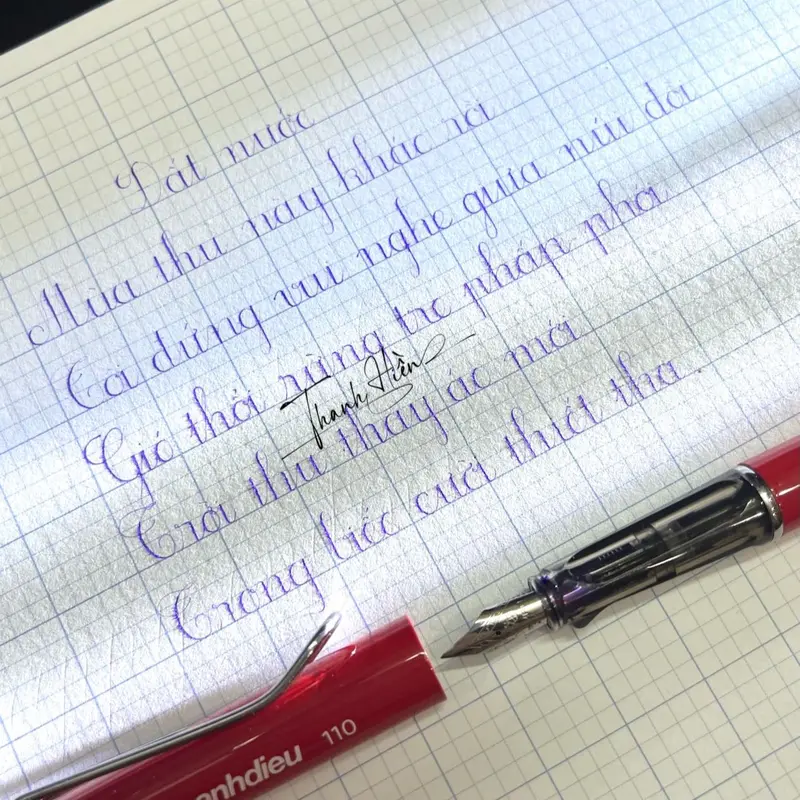 Đất nước
Mùa thu nay khác rồi
Tôi đứng vui nghe giữa núi đồi
Gió thổi rừng tre phấp phới
Thanh Hiền
Trời thu thay áo mới
Trong biếc cười thiết tha.
anhdieu 110